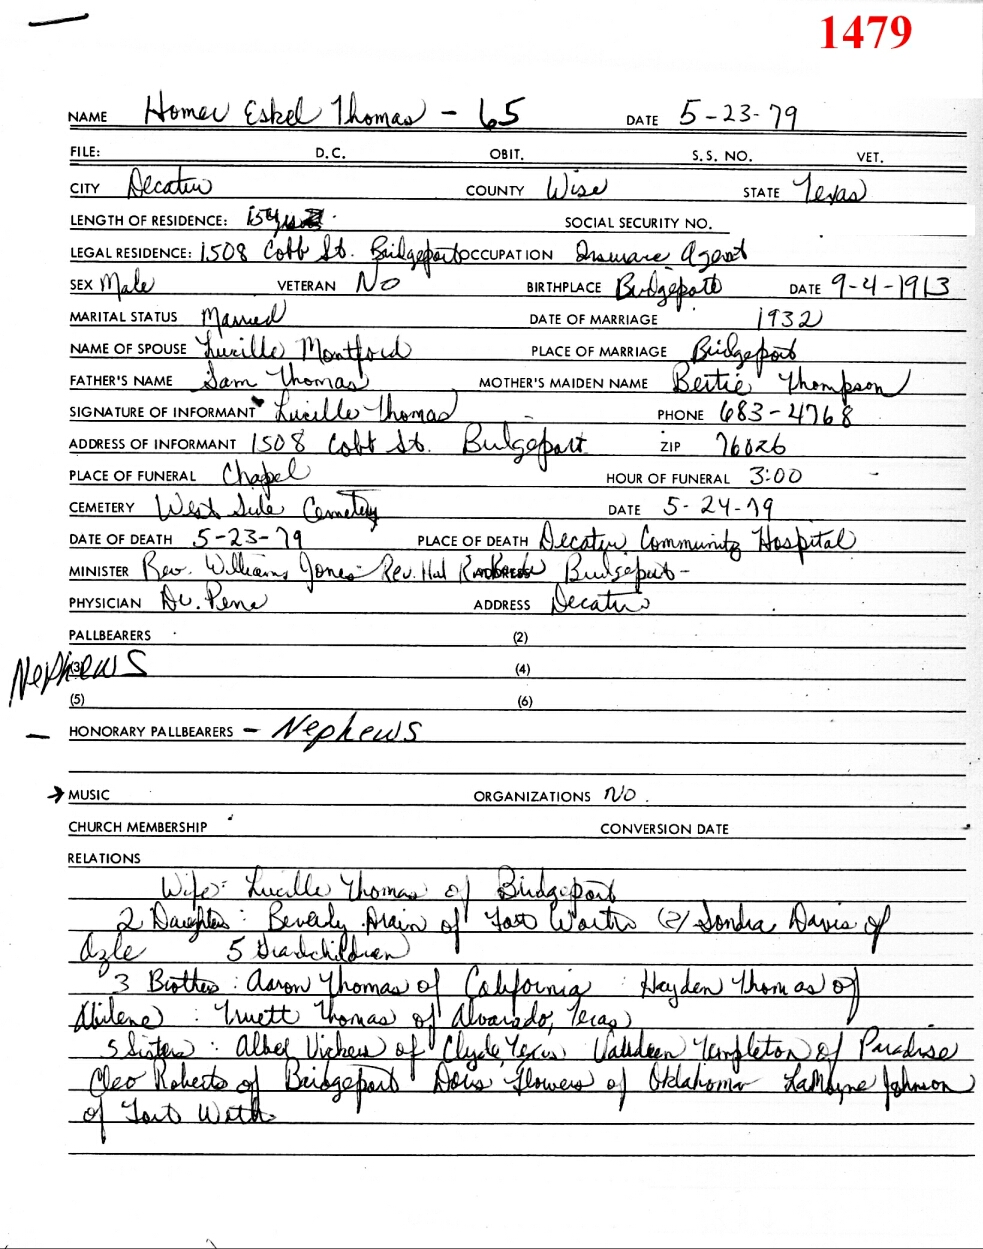 1479
NAME Homer Eskel Thomas - 65 DATE 5-23-79
FILE: D.C. OBIT. S.S. NO. VET.
CITY Decatur COUNTY Wise STATE Texas
LENGTH OF RESIDENCE: SOCIAL SECURITY NO.
LEGAL RESIDENCE: 1508 Cobb St. Bridgeport OCCUPATION Insurance Agent
SEX Male VETERAN NO BIRTHPLACE Bridgeport DATE 9-4-1913
MARITAL STATUS Married DATE OF MARRIAGE 1932
NAME OF SPOUSE Lucille Montford PLACE OF MARRIAGE Bridgeport
FATHER'S NAME Sam Thomas MOTHER'S MAIDEN NAME Bertie Thompson
SIGNATURE OF INFORMANT Lucille Thomas PHONE 683-4768
ADDRESS OF INFORMANT 1508 Cobb St. Bridgeport ZIP 76026
PLACE OF FUNERAL Chapel HOUR OF FUNERAL 3:00
CEMETERY West Side Cemetery DATE 5-24-79
DATE OF DEATH 5-23-79 PLACE OF DEATH Decatur Community Hospital
MINISTER Rev. Williams Jones Rev. Hal ADDRESS Bridgeport -
PHYSICIAN Dr. Pena ADDRESS Decatur
PALLBEARERS (2)
Nephews (3) (4)
(5) (6)
- HONORARY PALLBEARERS - Nephews
→ MUSIC ORGANIZATIONS NO.
CHURCH MEMBERSHIP CONVERSION DATE
RELATIONS
Wife: Lucille Thomas of Bridgeport
2 Daughters: Beverly Drain of Fort Worth (2) Sondra Davis of
Azle 5 Grandchildren
3 Brothers: Aaron Thomas of California Hayden Thomas of
Abilene: Truett Thomas of Alvarado, Texas
5 Sisters: Vickers of Clyde, Texas Templeton of Paradise
Cleo Roberts of Bridgeport Doris Flowers of Oklahoma LaMoyne Johnson
of Fort Worth